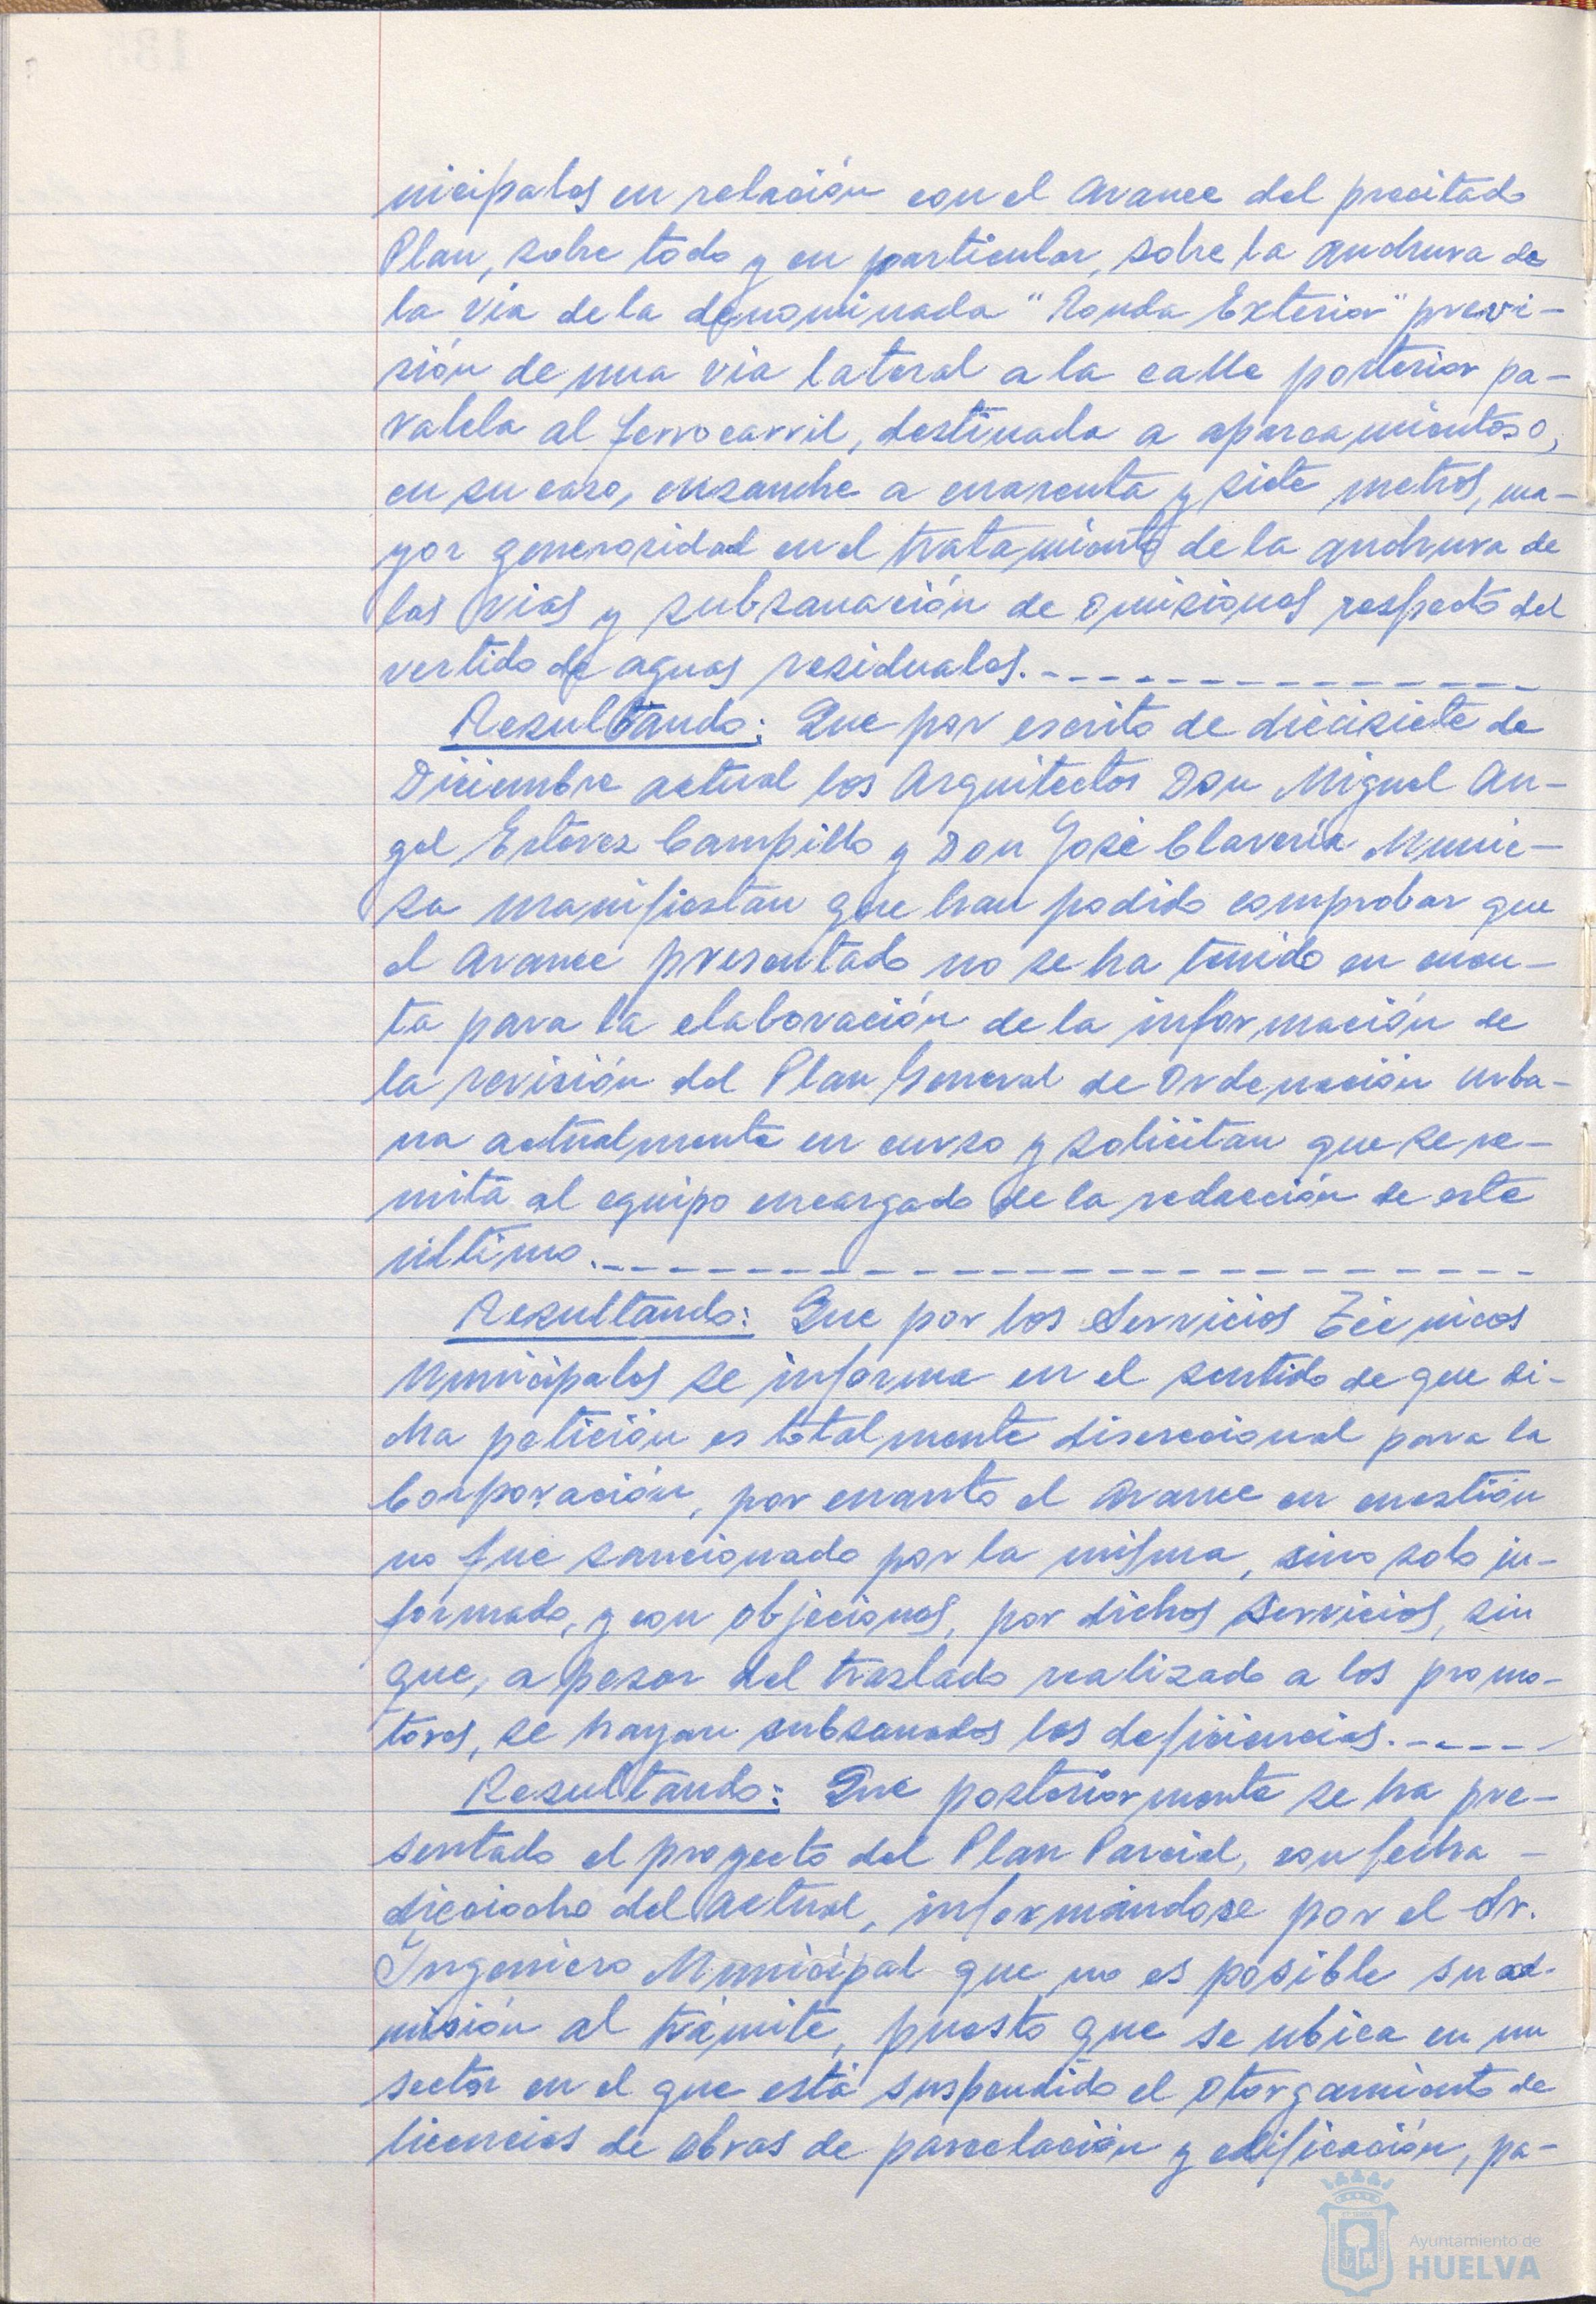 nicipales en relación con el Avance del precitado
Plan, sobre todo y en particular, sobre la anchura de
la vía de la denominada "Ronda Exterior" previ-
sión de una vía lateral a la calle posterior pa-
ralela al ferrocarril, destinada a aparcamientos o,
en su caso, ensanche a cuarenta y siete metros, ma-
yor generosidad en el tratamiento de la anchura de
las vias y subsanación de omisiones respecto del
vertido de aguas residuales.
Resultando: Que por escrito de diecisiete de
Diciembre actual los Arquitectos Don Miguel An-
gel Estévez Campillo y Don José Clavería Munie-
sa manifiestan que han podido comprobar que
el Avance presentado no se ha tenido en cuen-
ta para la elaboración de la información de
la revisión del Plan General de Ordenación urba-
na actualmente en curso y solicitan que se re-
mita al equipo encargado de la redacción de este
último.
Resultando: Que por los Servicios Técnicos
Municipales se informa en el sentido de que di-
cha petición es totalmente discrecional para la
Corporación, por cuanto el Avance en cuestión
no fue sancionado por la misma, sino solo in-
formado, y con objeciones, por dichos Servicios, sin
que, a pesar del traslado realizado a los promo-
tores, se hayan subsanados las deficiencias.
Resultando: Que posteriormente se ha pre-
sentado el proyecto del Plan Parcial, con fecha
dieciocho del actual, informándose por el Sr.
Ingeniero Municipal que no es posible su ad-
misión al trámite, puesto que se ubica en un
sector en el que está suspendido el otorgamiento de
licencias de obras de parcelación y edificación, pa-
Ayuntamiento de
HUELVA